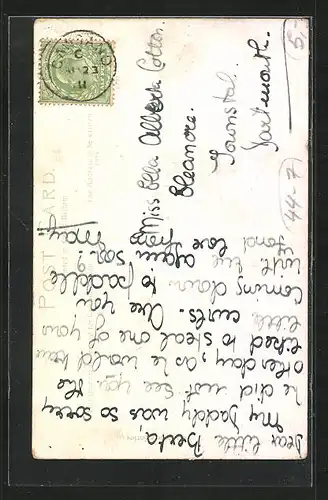 POST CARD.
Dear little Berta,
My Daddy was so sorry
he did not see you the
other day, as he would have
liked to steal one of your
little curls. Are you
coming down to paddle
with me again soon?
Fond love from
May
Miss Bella Alberta Cotton.
Eleanore.
Townstal.
Dartmouth.
44-7
5,-